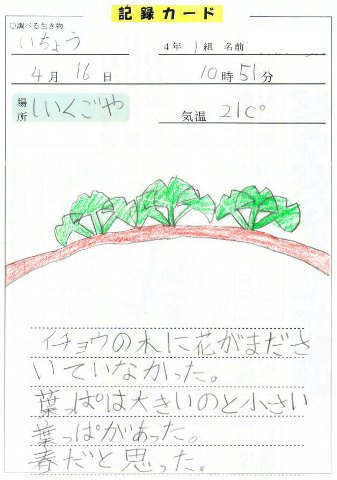 記録カード
○調べる生き物
いちょう
4年 1組 名前
4月 16日 10時51分
場所 しいくごや 気温 21C°
イチョウの木に花がまださ
いていなかった。
葉っぱは大きいのと小さい
葉っぱがあった。
春だと思った。